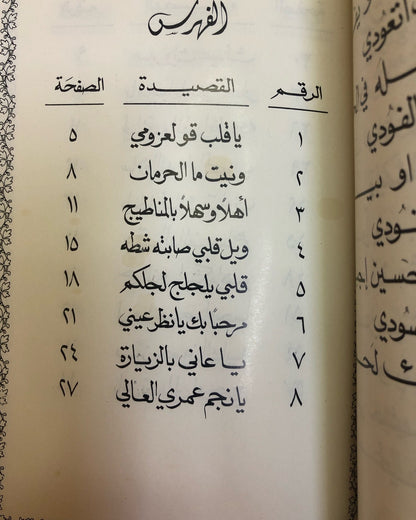 الفهرس
الرقم القصيدة الصفحة
١ يا قلب قو لعزومي ٥
٢ ونيت ما الحرمان ٨
٣ أهلاً وسهلاً بالمناطيح ١١
٤ ويل قلبي صابته شطه ١٥
٥ قلبي يلجلج لجلكم ١٨
٦ مرحبًا بك يا نظر عيني ٢١
٧ يا عاني بالزيارة ٢٤
٨ يا نجم عمري العالي ٢٧
اتغودي
الفودي
او
نودي
سودي